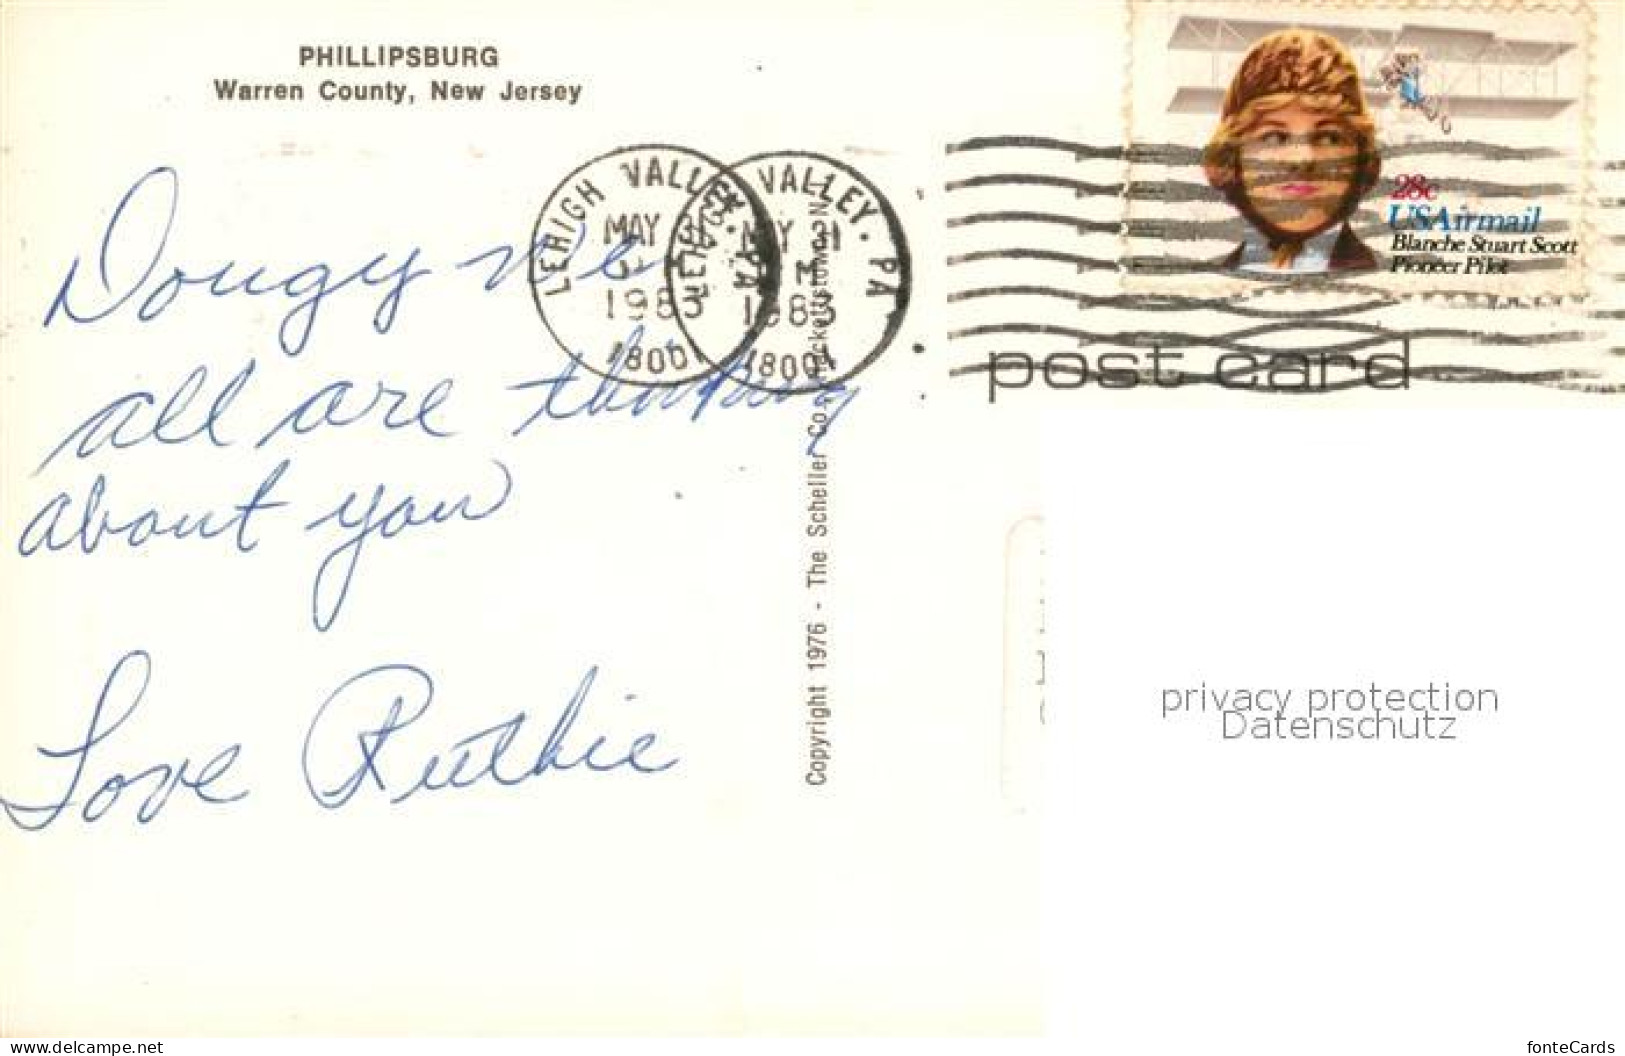 PHILLIPSBURG
Warren County, New Jersey
Dougy we
all are thinking
about you
Love Ruthie
LEHIGH VALLEY, PA
MAY 21
1983
18001
LEHIGH VALLEY, PA
MAY 21
1983
18001
28c
USAirmail
Blanche Stuart Scott
Pioneer Pilot
post card
Copyright 1976 - The Scheller Co. Hackettstown, N.
privacy protection
Datenschutz
www.delcampe.net
fonteCards